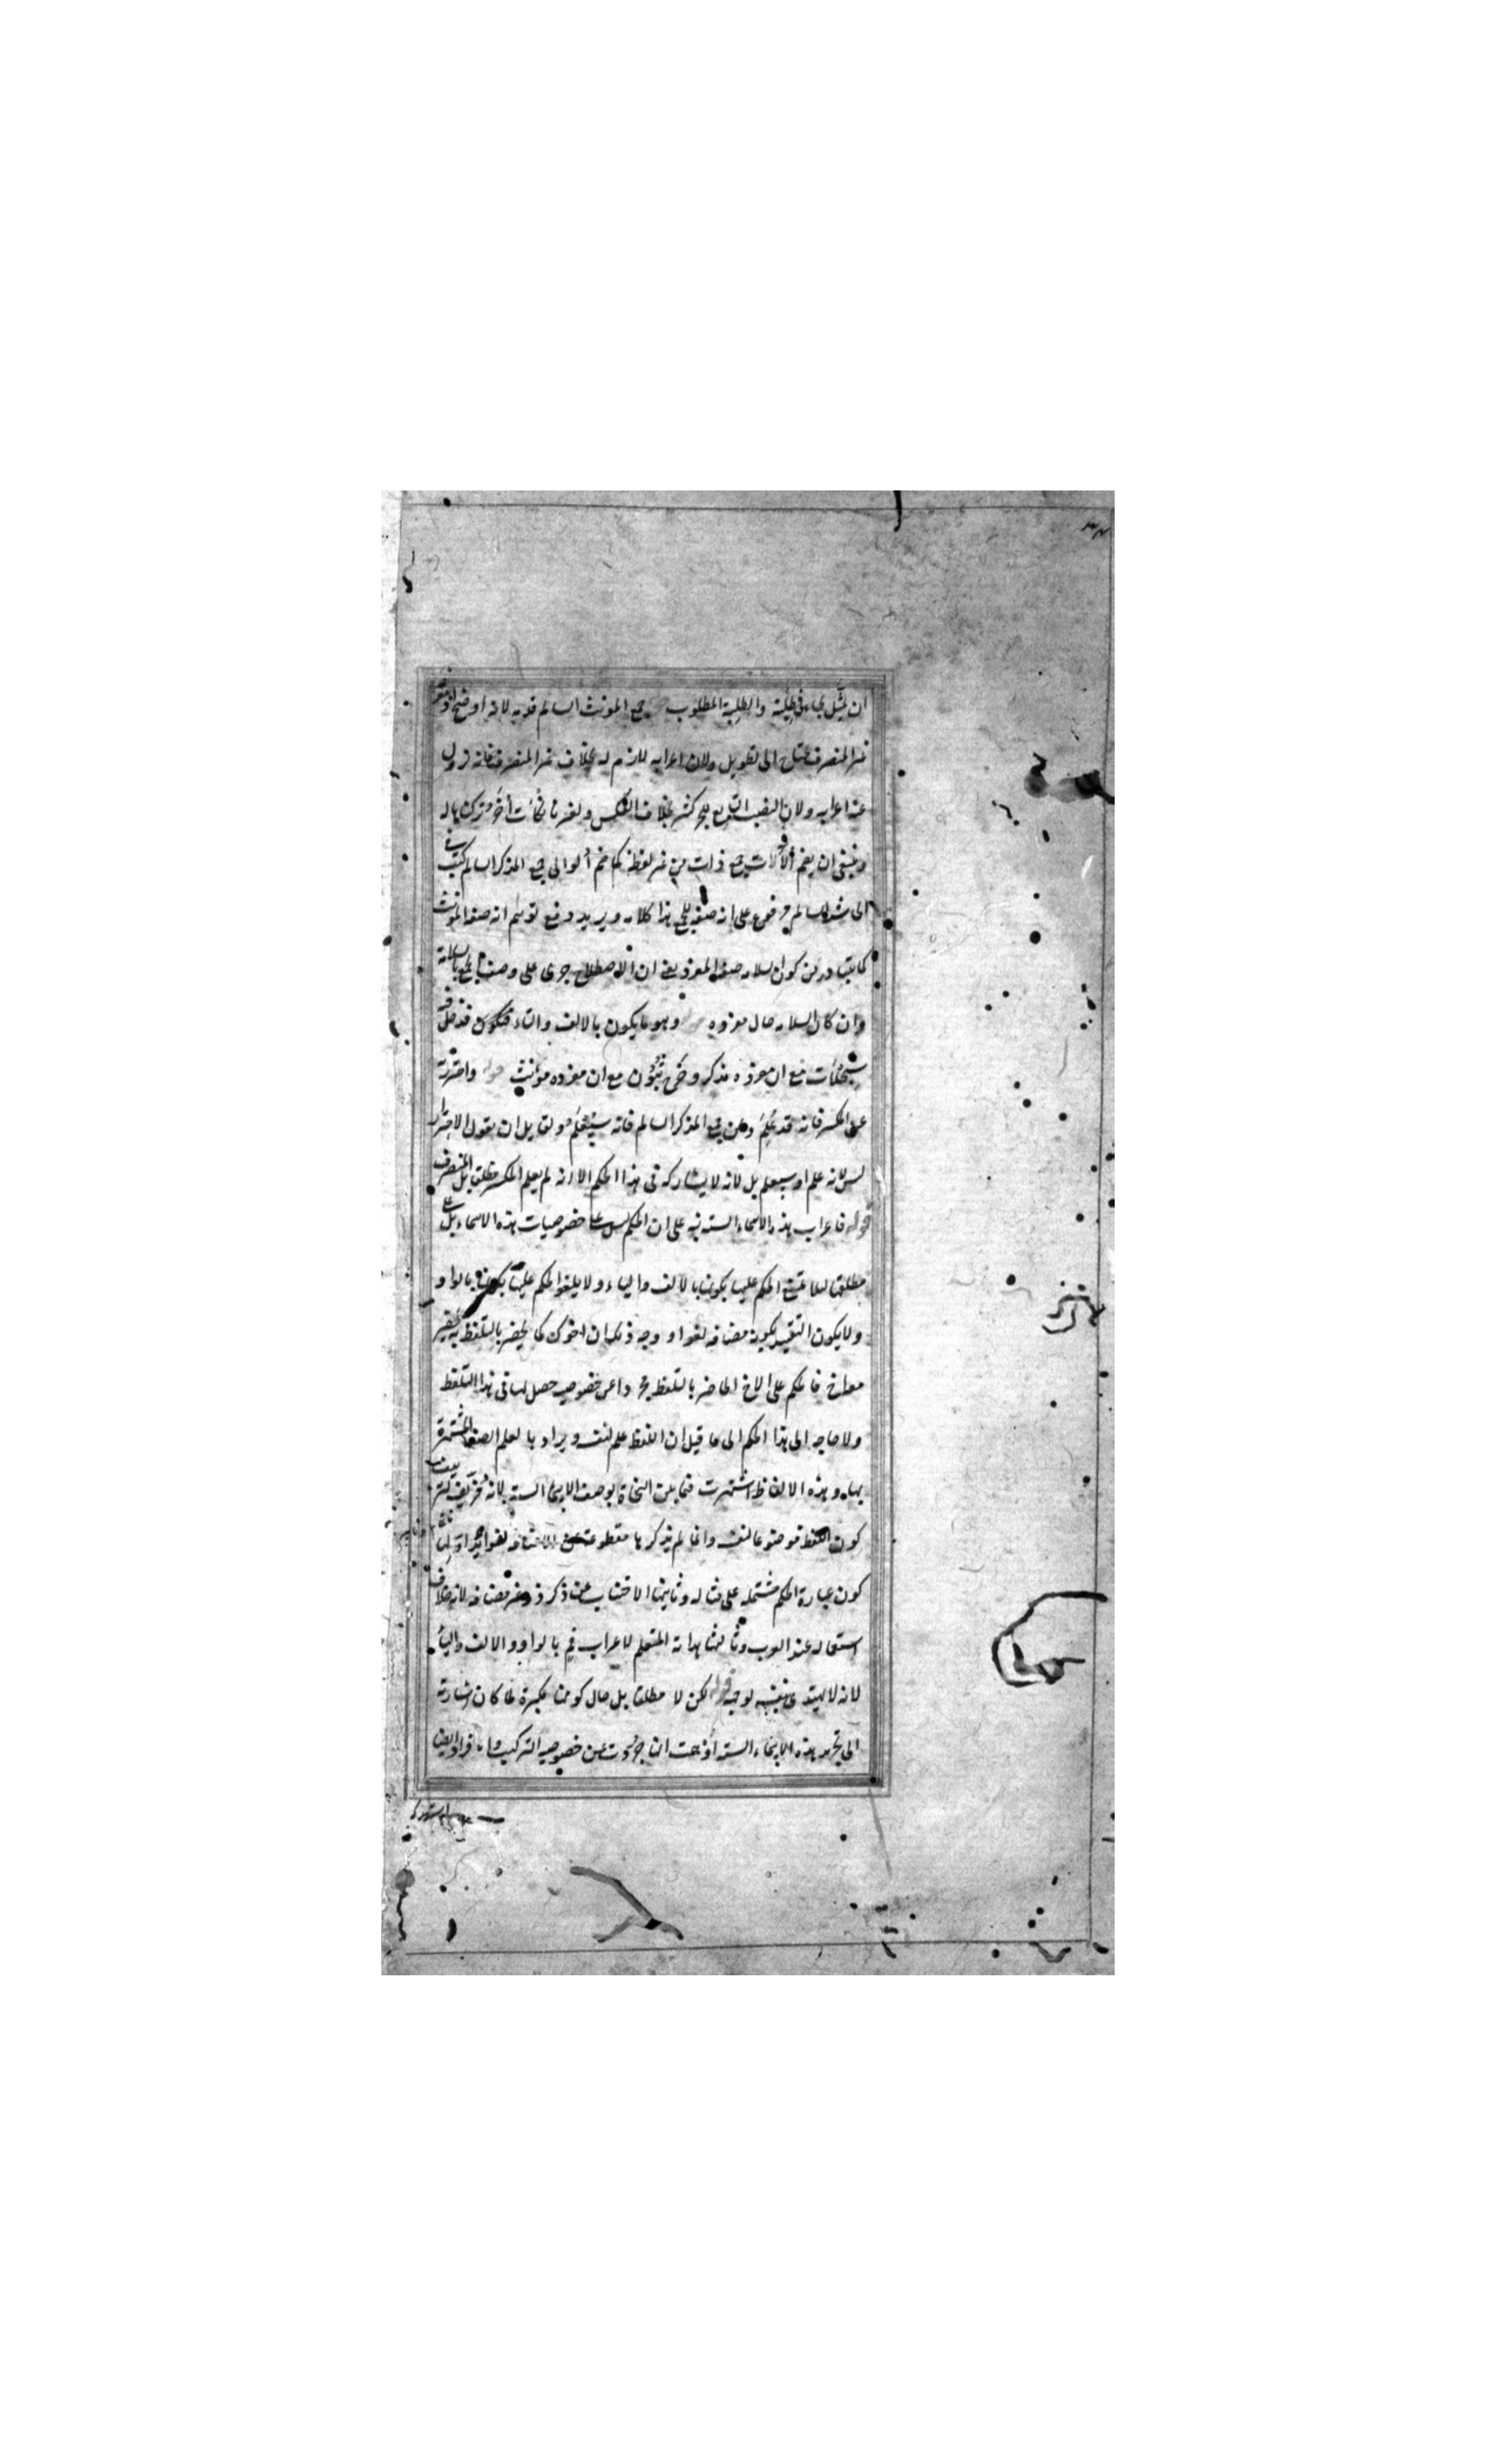 ان يمثل بجاءنى طلبة والطلبة المطلوب جمع المونث السالم قدمه لانه اوضح اذ معرفة
غير المنصرف يحتاج الى تطويل ولان اعرابه لازم له بخلاف غير المنصرف فانه يزول
عنه اعرابه ولان النصب التابع للجر كثير بخلاف العكس ولغيرنا نكات أخر تركناها له
وينبغى ان يضم أُلات جمع ذات من غير لفظه كما ضم أُلو الى جمع المذكر السالم كتب فى
الى شه السالم مرفوع على انه صفة للجمع هذا كلامه ويريد دفع توهم انه صفة المونث
كما يتبادر من كون السلامة صفة المفرد يعنى ان الاصطلاح جرى على وصف الجمع بالسلامة
وان كان السلامة حال مفرده وهو ما يكون بالالف والتاء فيكون فدخل فيه
سجلات مع ان مفرده مذكر وخرج ثبون مع ان مفرده مونث قوله واحترز به
عن المكسر فانه قد علم وعن جمع المذكر السالم فانه سيعلم ولقايل ان يقول الاحتراز
ليس لانه علم او سيعلم بل لانه لا يشاركه فى هذا الحكم الا انه لم يعلم المكسر مطلقا بل المنصرف
قوله فاعراب هذه الاسماء الستة نبه على ان الحكم ليس على خصوصيات هذه الاسماء بل على
مطلقها لئلا يمتنع الحكم عليها بكونها بالالف والياء ولا يلغو الحكم عليها بكونها بالواو
ولا يكون التقييد بكونه مضافة لغوا ووجه ذلك ان اخوك كما يحضر بالتلفظ به يحضر
معه اخ فالحكم على الاخ الحاضر بالتلفظ مجردا عن خصوصية حصل لها فى هذا التلفظ
ولا حاجة الى هذا الحكم الى ما قيل ان اللفظ علم لنفسه ويراد بالعلم الصفة المشتهرة
بها وهذه الالفاظ اشتهرت فيما بين النحاة بوصف الاسماء الستة لانه مزيف
كون اللفظ موضوعا لنفسه وانما لم يذكرها مقطوعة عن الاضافة لفوايد اوليها
كون عبارة الحكم مشتملة على مثاله وثانيها الاجتناب عن ذكر ذو غير مضافة لانه خلاف
استعماله عند العرب وثالثها هداية المتعلم لاعراب فم بالواو والالف والياء
لانه لا يهتدى بنفسه لوجهه قوله لكن لا مطلقا بل حال كونها مكبرة لما كان اشارته
الى تجريد هذه الاسماء الستة أوهمت انها جردت عن خصوصية التركيب والافراد ايضا